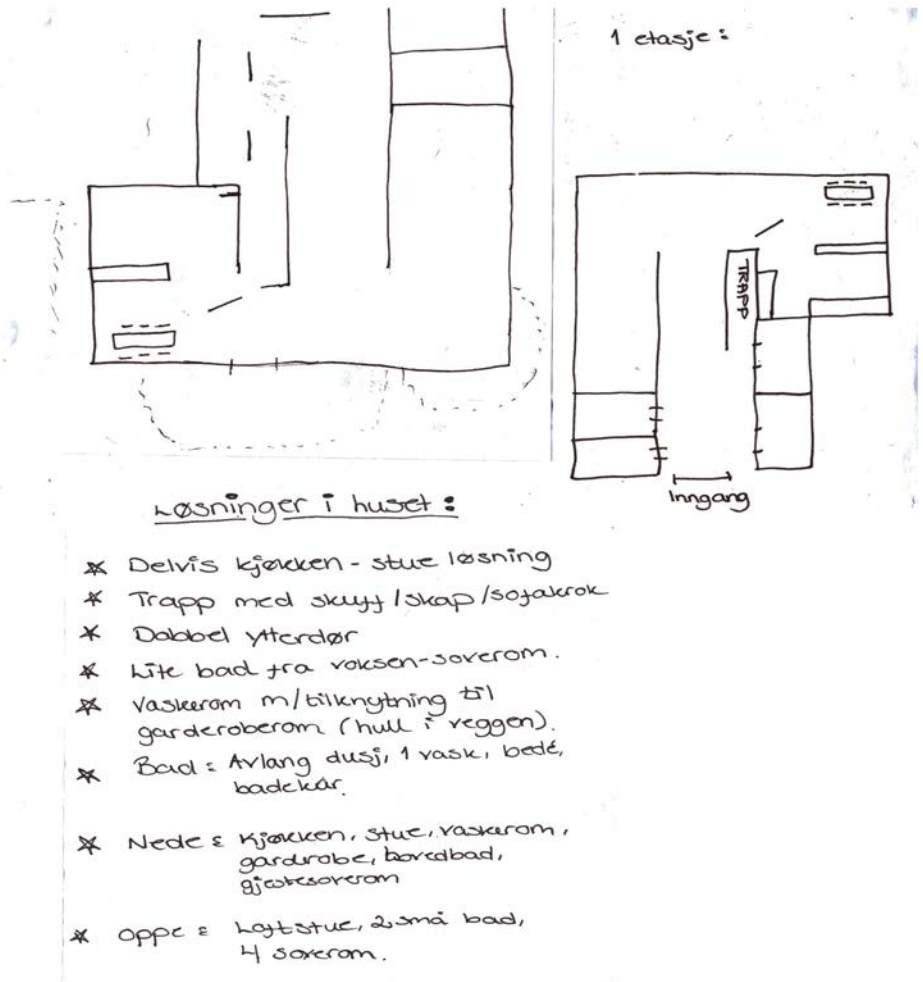 1 etasje :
TRAPP
Inngang
Løsninger i huset :
* Delvis kjøkken - stue løsning
* Trapp med skuff/skap/sofakrok
* Dobbel ytterdør
* Lite bad fra voksen-soverom.
* Vaskerom m/tilknytning til
garderoberom (hull i veggen).
* Bad : Avlang dusj, 1 vask, bedé,
badekar.
* Nede : Kjøkken, stue, vaskerom,
gardrobe, hovedbad,
gjestesoverom
* Oppe : Loftstue, 2 små bad,
4 soverom.